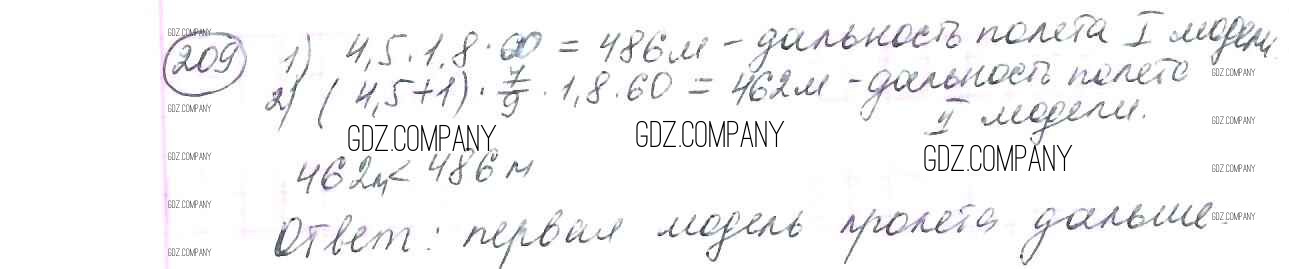 209 1) 4,5 · 1,8 · 60 = 486м – дальность полета I модели.
2) (4,5+1) · 7/9 · 1,8 · 60 = 462м – дальность полета
II модели.
462м < 486м
Ответ: первая модель пролета дальше.
GDZ.COMPANY
GDZ.COMPANY
GDZ.COMPANY
GDZ.COMPANY
GDZ.COMPANY
GDZ.COMPANY
GDZ.COMPANY
GDZ.COMPANY
GDZ.COMPANY
GDZ.COMPANY
GDZ.COMPANY
GDZ.COMPANY
GDZ.COMPANY